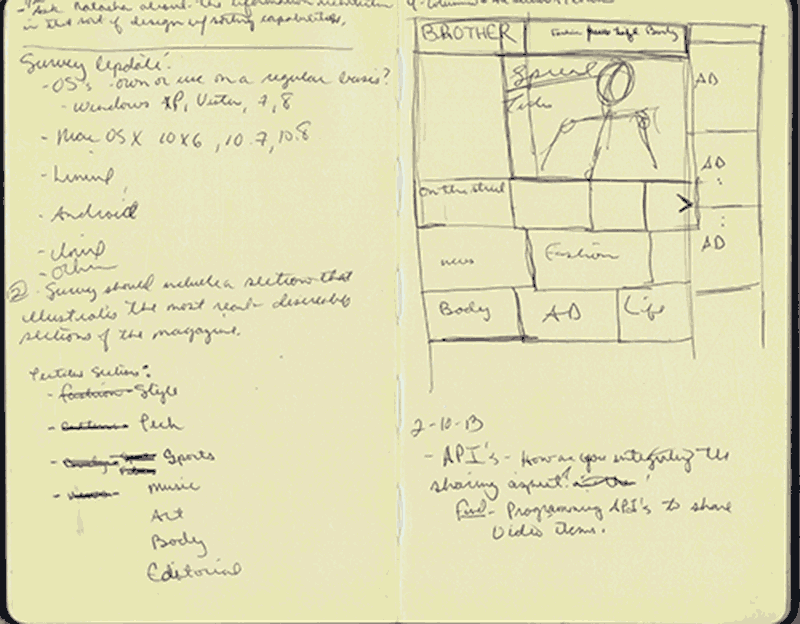 Ask Natasha about the information architecture
in the sort of design w/ sorting capabilities.
Survey Update:
- OS's own or use on a regular basis?
- Windows XP, Vista, 7, 8
- Mac OSX 10X6, 10.7, 10.8
- Android
- Other
② Survey should include a section that
illustrates the most
sections of the magazine.
Sections:
- fashion - Style
- Tech
- Sports
- Music
Art
Body
Editorial
4-Column
BROTHER
Body
AD
Special
AD
On the street
>
AD
news
Fashion
Body
AD
Life
2-10-13
- API's - How are you integrating the
sharing aspect?
Find - Programming API's to share
Video items.